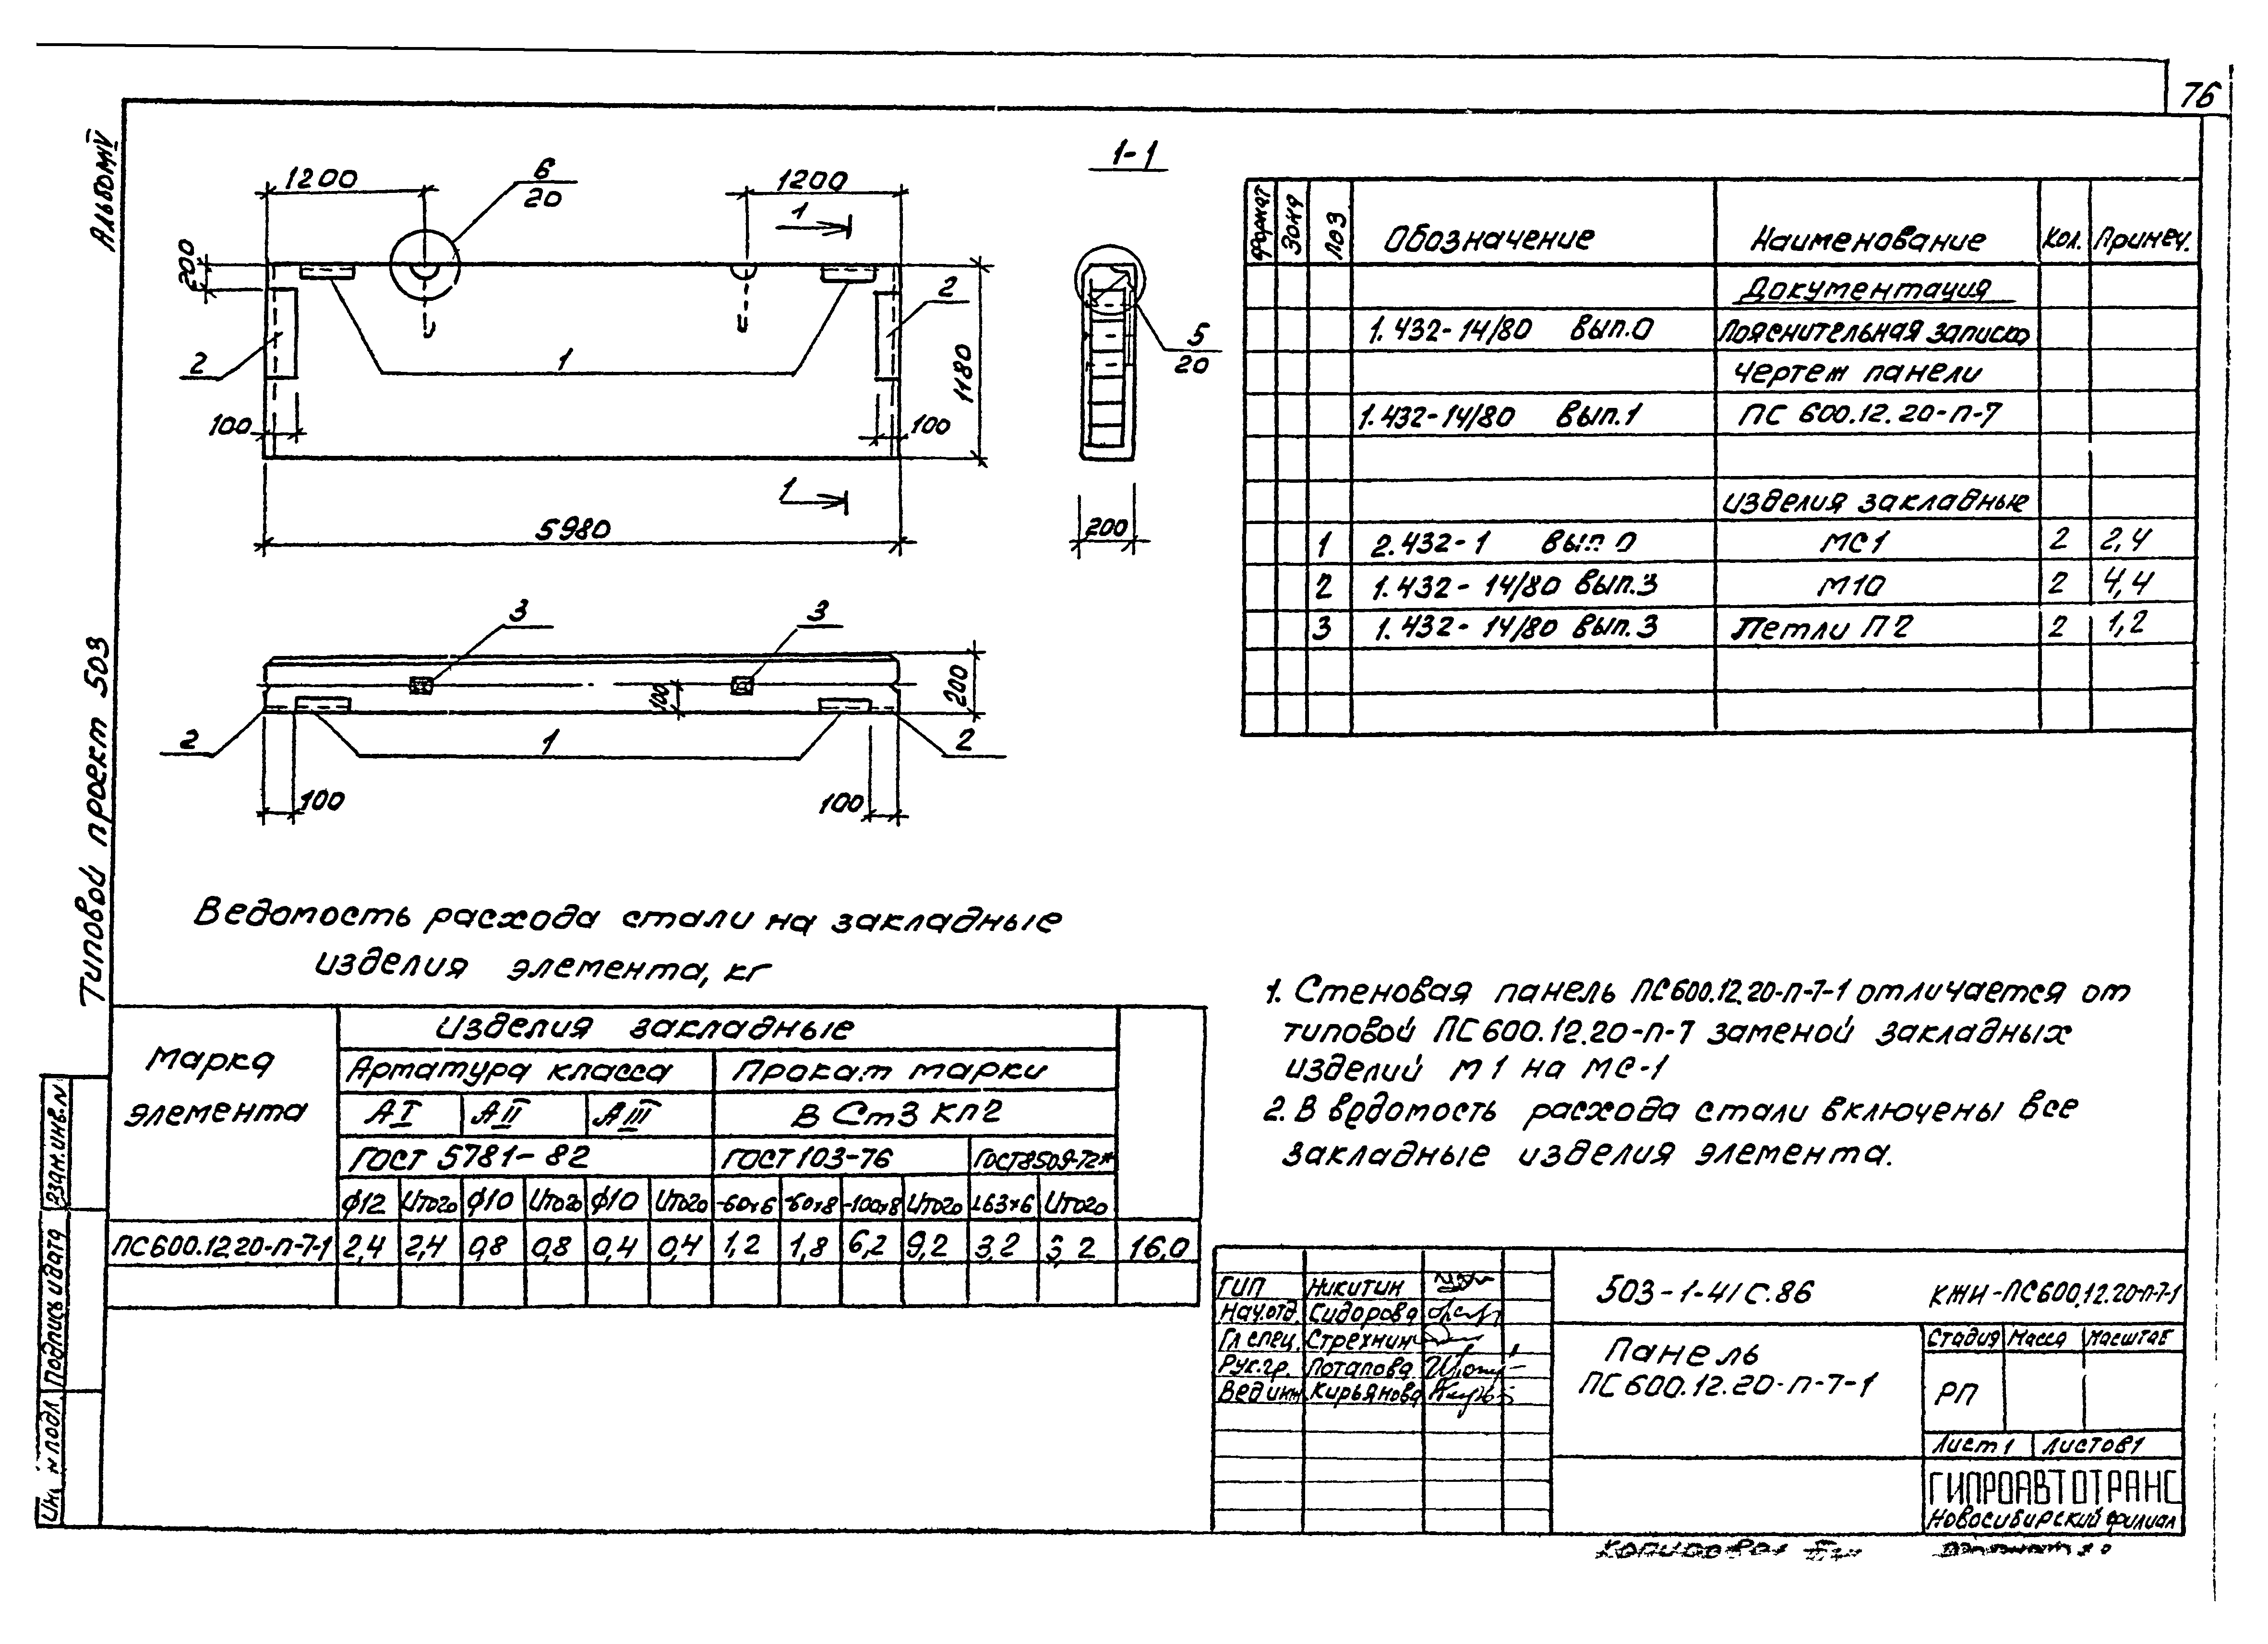 76
Альбом IV
Типовой проект 503
Взам.инв.N
Подпись и дата
Инв. N подл.
1200
6
20
1200
1
1-1
200
2
1
2
1180
100
100
1
5980
5
20
200
3
3
200
100
2
1
2
100
100
Формат Зона Поз Обозначение Наименование Кол. Примеч.
Документация
1.432-14/80 Вып.0 Пояснительная записка
Чертеж панели
1.432-14/80 Вып.1 ПС 600.12.20-п-7
Изделия закладные
1 2.432-1 Вып 0 МС1 2 2,4
2 1.432-14/80 Вып.3 М10 2 4,4
3 1.432-14/80 Вып.3 Петли П2 2 1,2
Ведомость расхода стали на закладные
изделия элемента, кг
Марка
элемента
Изделия закладные
Арматура класса Прокат марки
АI АII АIII В Ст3 Кп2
ГОСТ 5781-82 ГОСТ 103-76 ГОСТ8509-72*
ϕ12 Итого ϕ10 Итого ϕ10 Итого -60х6 -60х8 -100х8 Итого L63х6 Итого
ПС600.12.20-п-7-1 2,4 2,4 0,8 0,8 0,4 0,4 1,2 1,8 6,2 9,2 3,2 3,2 16,0
1. Стеновая панель ПС600.12.20-п-7-1 отличается от
типовой ПС600.12.20-п-7 заменой закладных
изделий М1 на МС-1
2. В ведомость расхода стали включены все
закладные изделия элемента.
ГИП Никитин
Нач.отд. Сидорова
Гл спец. Стрехнин
Рук.гр. Потапова
Вед инж. Кирьянова
503-1-41с.86 КЖИ-ПС600.12.20-п-7-1
Панель
ПС600.12.20-п-7-1
Стадия Масса Масштаб
РП
Лист 1 Листов 1
ГИПРОАВТОТРАНС
Новосибирский филиал
Копировал